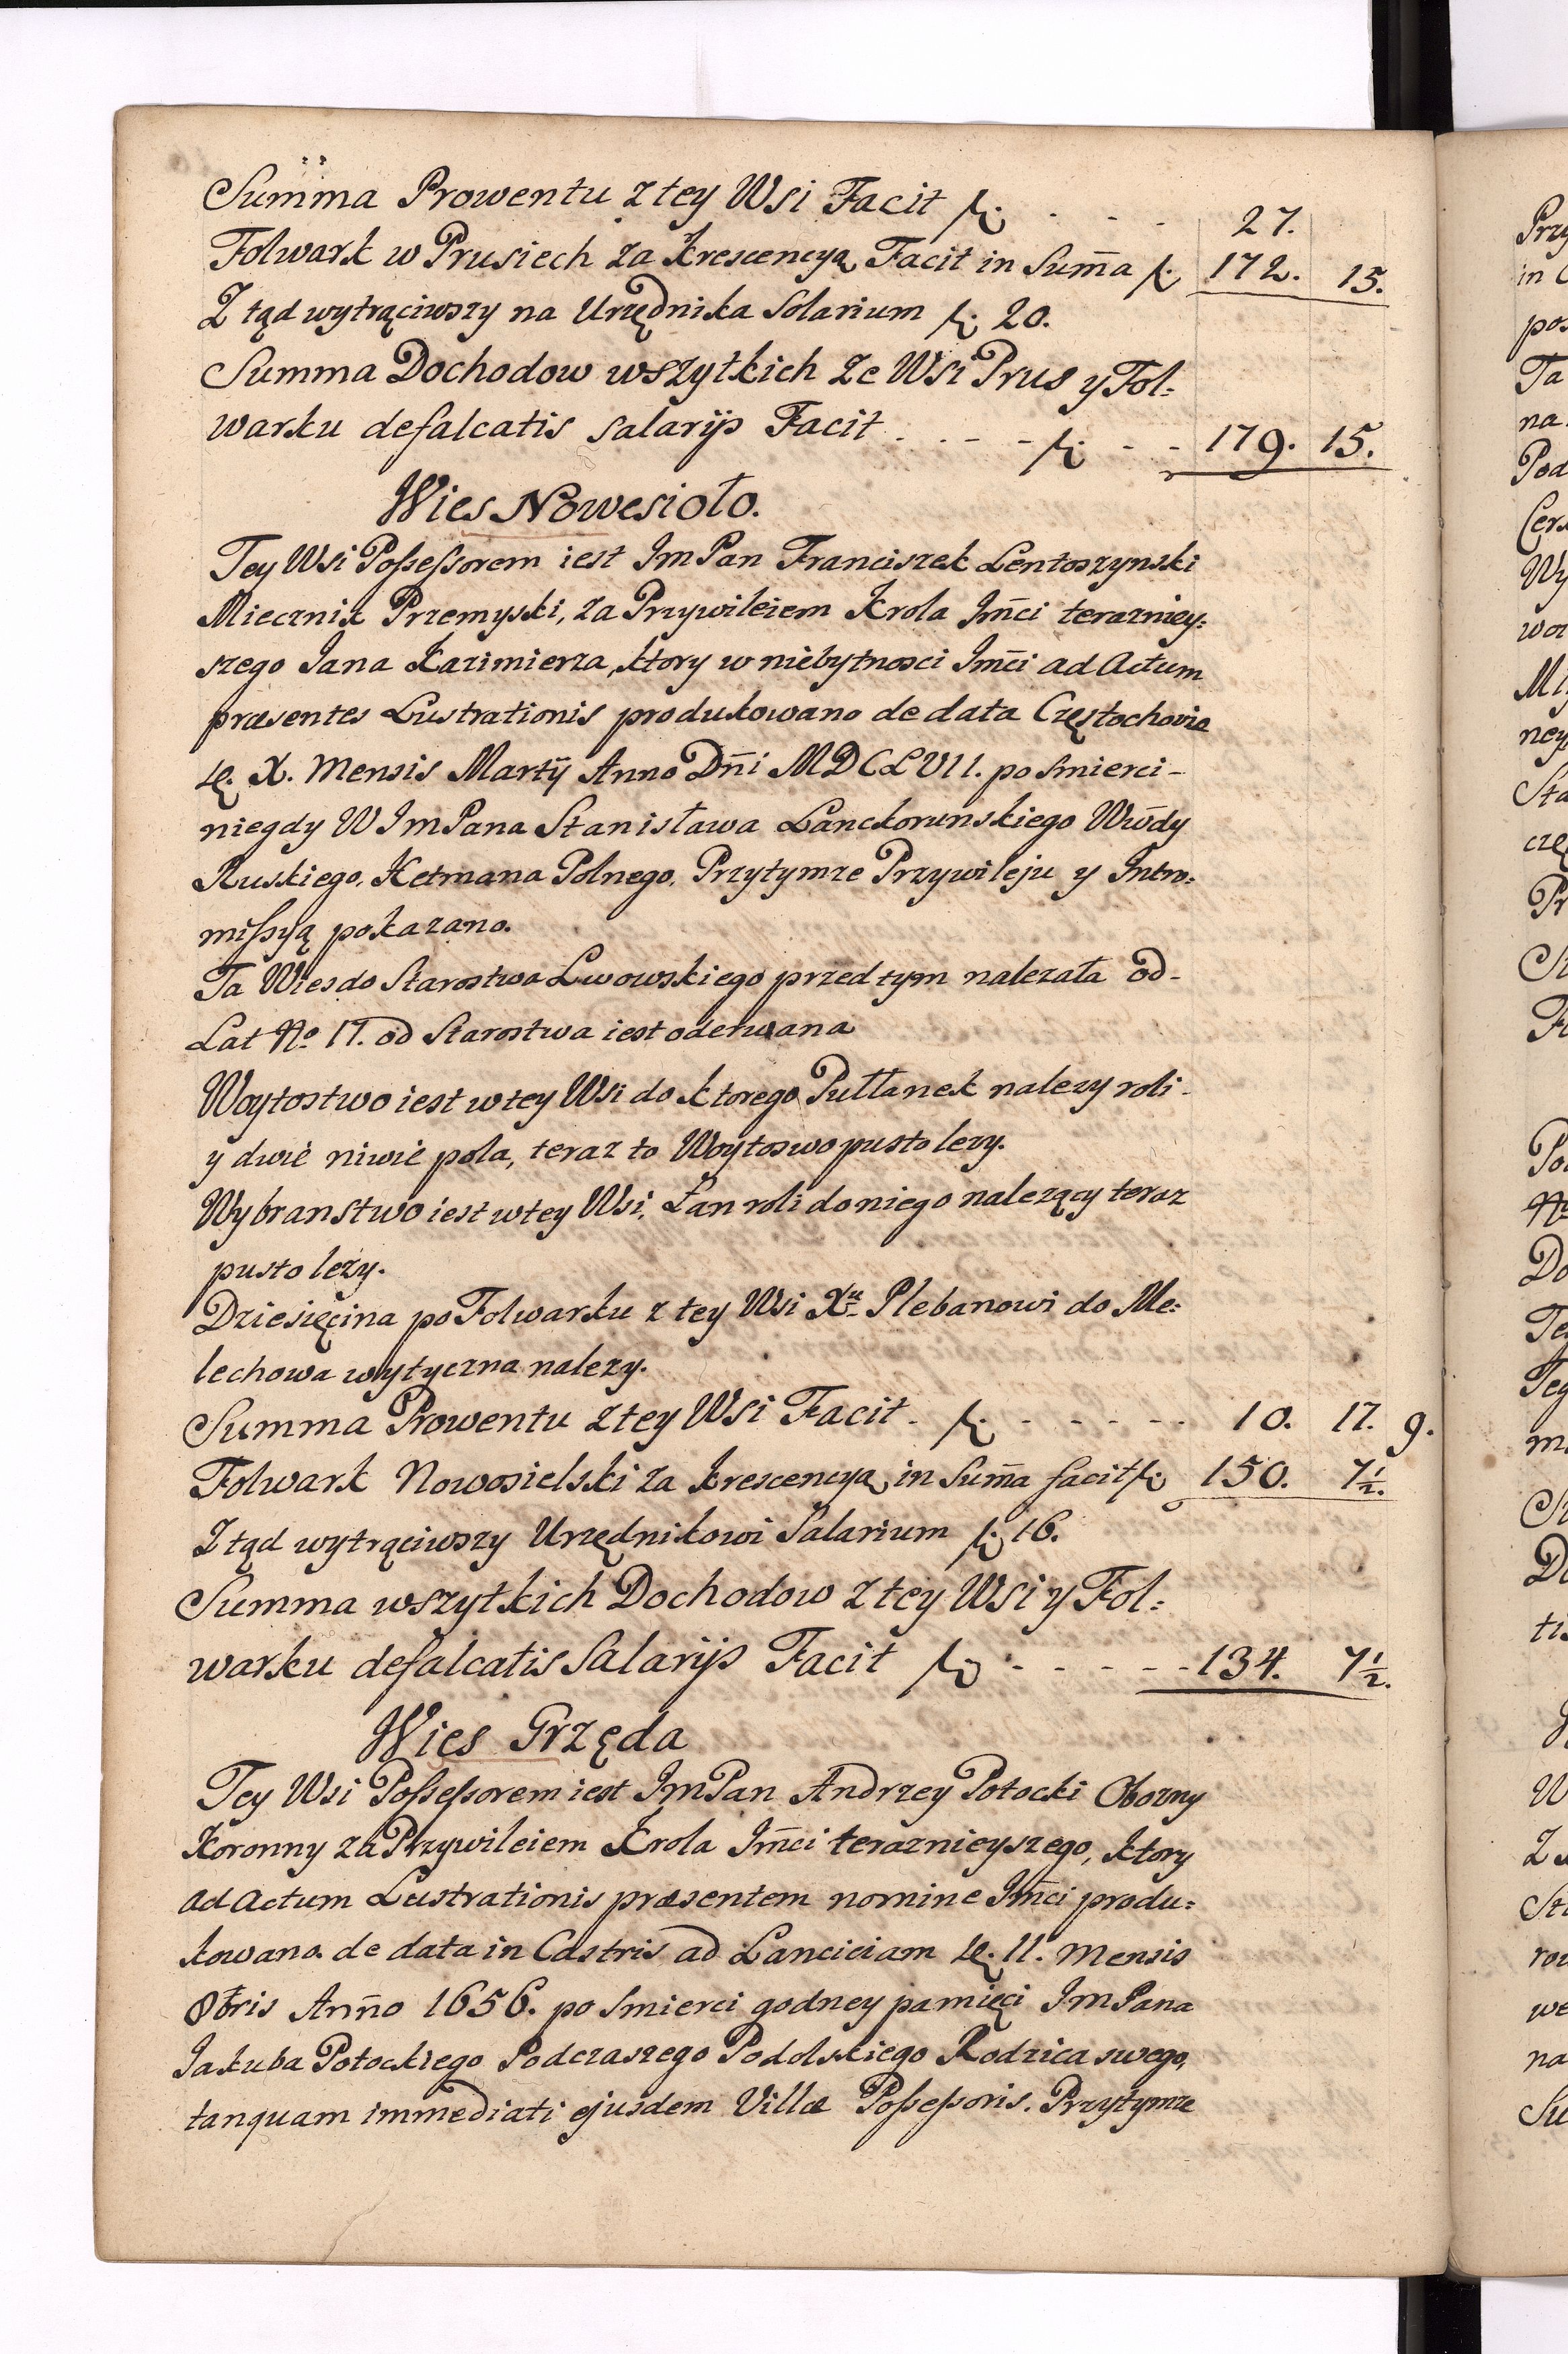 Summa Prowentu z tey Wsi Facit f. - - - 27.
Folwark w Prusiech za Krescencyą Facit in Sum̄a f. 172. 15.
Z tąd wytrąciwszy na Urzędnika Solarium f. 20.
Summa Dochodow wszytkich ze Wsi Prus y Fol=
warku defalcatis salarijs Facit - - - - f. - - 179. 15.
Wies Nowesioło.
Tey Wsi Possessorem iest Im Pan Franciszek Lentoszynski
Miecznik Przemyski, za Przywileiem Krola Jm̄ci terazniey=
szego Jana Kazimierza, ktory w niebytnosci Jm̄ci ad Actum
præsentes Lustrationis produkowano de data Częstochoviæ
X. Mensis Martij Anno Dn̄i MDCLVII. po smierci -
niegdy W Jm Pana Stanisława Lanckorunskiego Ww̄dy
Ruskiego, Hetmana Polnego, Przytymze Przywileju y Intro=
missyą pokazano.
Ta Wies do Starostwa Lwowskiego przed tym nalezała od -
Lat No 17. od Starostwa iest oderwana
Woytostwo iest w tey Wsi do ktorego Pułłanek nalezy roli -
y dwie niwie pola, teraz to Woytoswo pusto lezy.
Wybranstwo iest w tey Wsi, Łan roli do niego nalezący teraz
pusto leży.
Dziesięcina po Folwarku z tey Wsi Xu Plebanowi do Me=
lechowa wytyczna nalezy.
Summa Prowentu z tey Wsi Facit - f. - - - - - 10. 17. 9.
Folwark Nowosielski za krescencyą in Sum̄a facit f. 150. 7½.
Z tąd wytrąciwszy Urzędnikowi Salarium f. 16.
Summa wszytkich Dochodow z tey Wsi y Fol=
warku defalcatis Salarijs Facit f. - - - - - 134. 7½.
Wies Grzęda
Tey Wsi Possessorem iest Jm Pan Andrzey Potocki Obozny
Koronny za Przywileiem Krola Jm̄ci teraznieyszego, ktory
ad Actum Lustrationis præsentem nomine Jm̄ci produ=
kowano de data in Castris ad Lanciciam 11. Mensis
8bris An̄no 1656. po smierci godney pamięci Jm Pana
Jakuba Potockiego Podczaszego Podolskiego Rodzica swego,
tanquam immediati ejusdem Villæ Possessoris. Przytymze